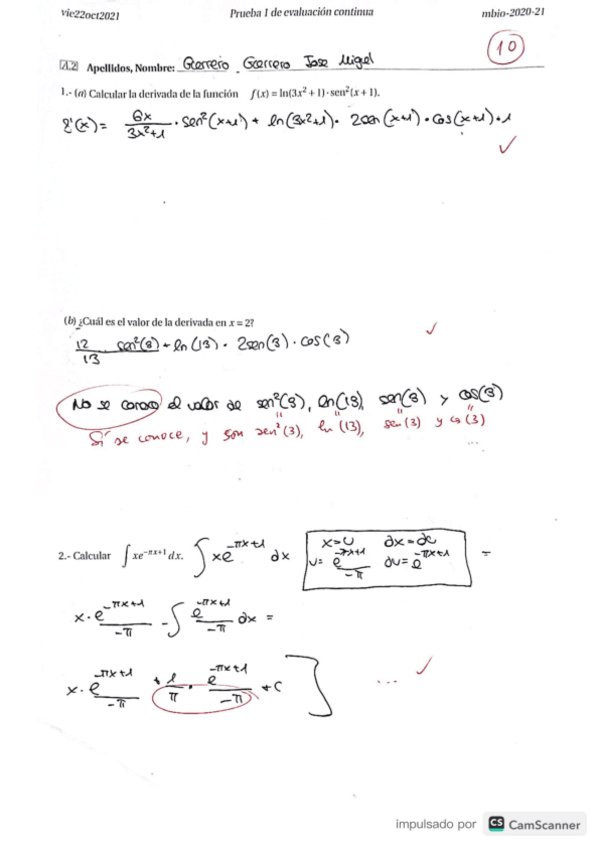 vic22oct2021 Prueba 1 de evaluación continua mbio-2020-21
10
A.2 Apellidos, Nombre: Guerrero Guerrero Jose Miguel
1.- (a) Calcular la derivada de la función f(x) = ln(3x² + 1) · sen²(x + 1).
f'(x) = 6x/3x²+1 · sen²(x+1) + ln(3x²+1) · 2sen(x+1) · cos(x+1) · 1
(b) ¿Cuál es el valor de la derivada en x = 2?
12/13 sen²(3) + ln(13) · 2sen(3) · cos(3)
No se conoce el valor de sen²(3), ln(13), sen(3) y cos(3)
Sí se conoce, y son sen²(3), ln(13), sen(3) y cos(3)
2.- Calcular ∫xe^(-πx+1) dx. ∫xe^(-πx+1) dx
x=u dx=du
v= e^(-πx+1)/-π dv=e^(-πx+1)
=
x·e^(-πx+1)/-π - ∫e^(-πx+1)/-π dx =
x·e^(-πx+1)/-π + 1/π · e^(-πx+1)/-π + C ] ...
impulsado por CS CamScanner